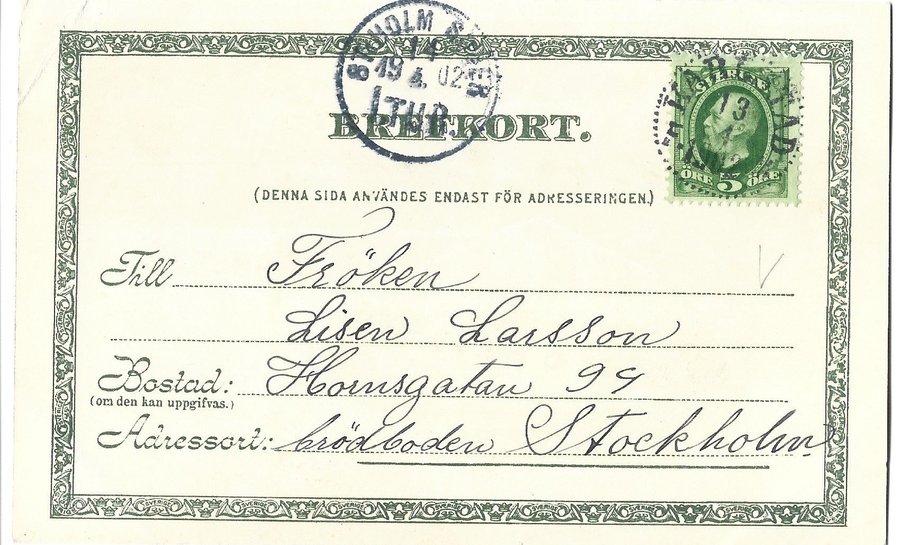 BREFKORT.
(DENNA SIDA ANVÄNDES ENDAST FÖR ADRESSERINGEN.)
SVERIGE
ÖRE 5 ÖRE
13
14
19 4 02
1 TUR.
Till Fröken
Lisen Larsson
Bostad: Hornsgatan 99
(om den kan uppgifvas.)
Adressort: brödboden Stockholm.